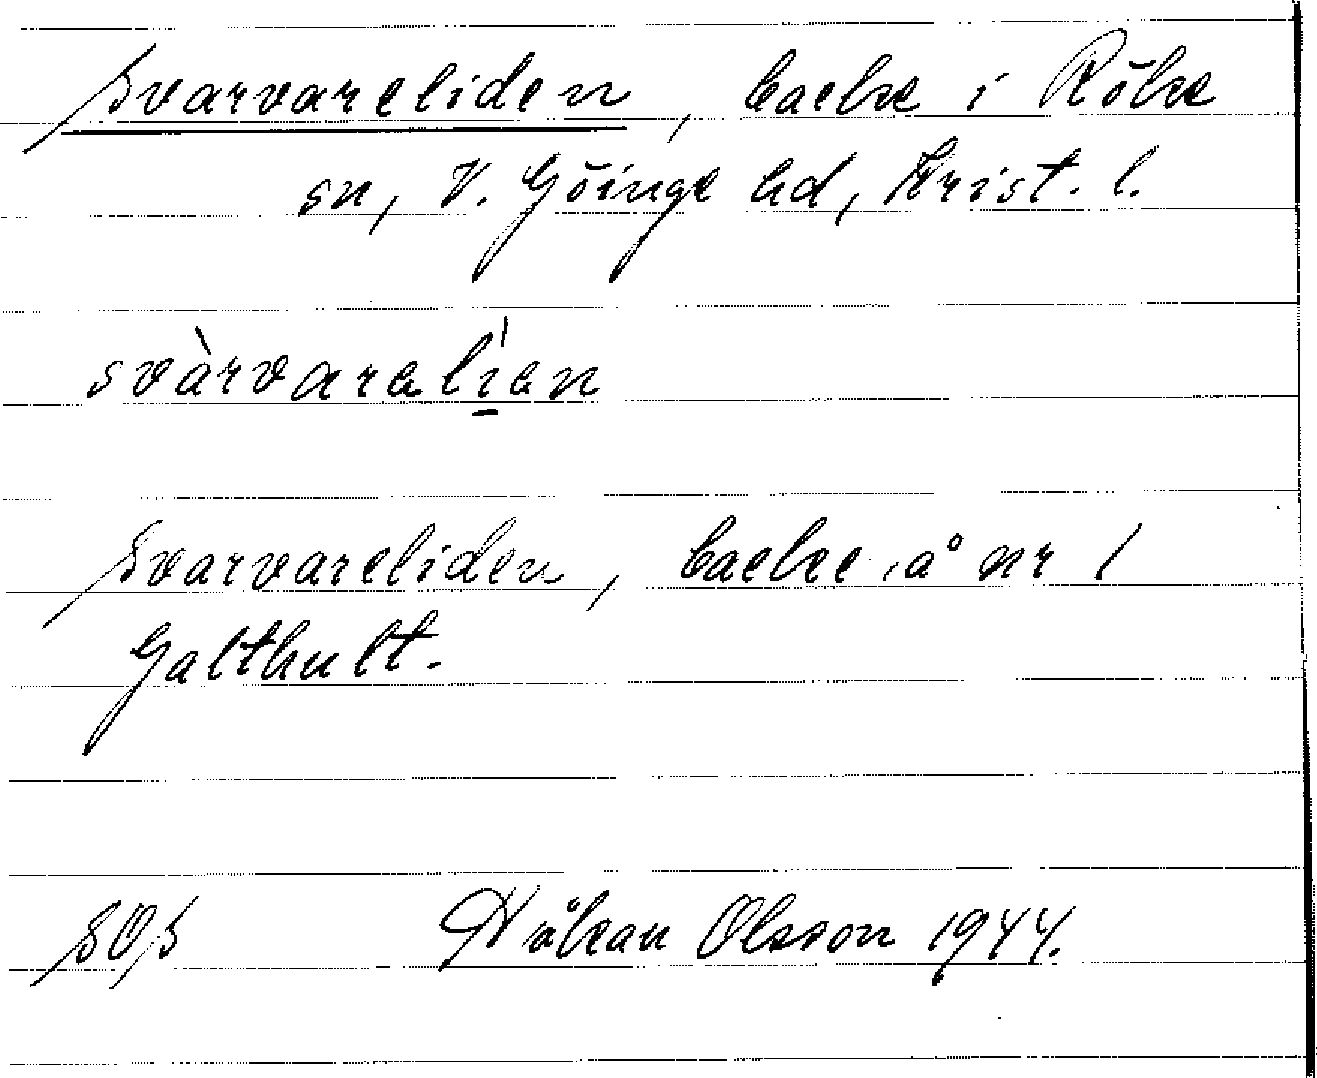 Svarvareliden, backe i Röke
sn, V. Göinge hd, Krist. l.
svàrvaralían
Svarvareliden, backe å nr 1
Galthult.
SOS Håkan Olsson 1944.